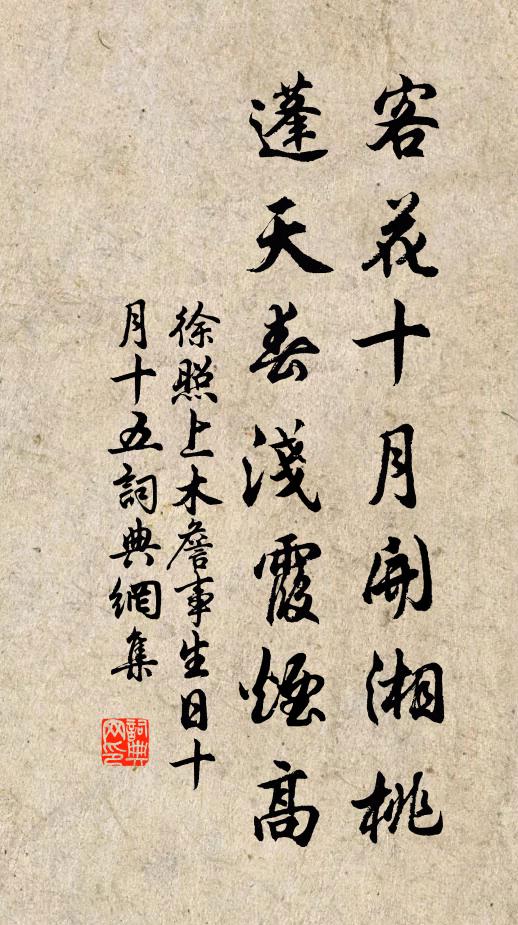 客花十月開湘桃
蓬天春淺霞煙高
徐照上木詹事生日十
月十五詞典網集
詞典網印